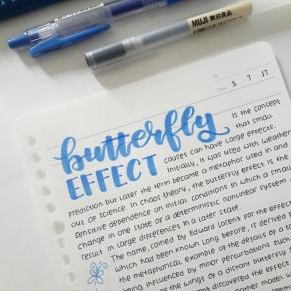 MUJI 無印良品
5 7 17
butterfly
EFFECT
is the concept
that small
causes can have large effects.
Initially, it was used with weather
prediction but later the term became a metaphor used in and
out of science. In chaos theory, the butterfly effect is the
sensitive dependence on initial conditions in which a small
change in one state of a deterministic nonlinear system
result in large differences in a later state.
The name, coined by Edward Lorent for the effect
which had been known long before, is derived f
the metaphorical example of the details of a to
being influenced by minor perturbations such
of the wings of a distant butterfly
discovered the effect